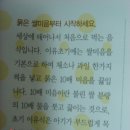 묽은 쌀미음부터 시작하세요.
세상에 태어나서 처음으로 먹는 음
식입니다. 이유초기에는 쌀미음을
기본으로 하여 채소나 과일 한가지
씩을 넣고 묽은 10배 미음을 끓입
니다. 10배 미음이란 불린 쌀 분량
의 10배 물을 붓고 끓이는 것으로,
초기 이유식은 아기가 부드럽게 목